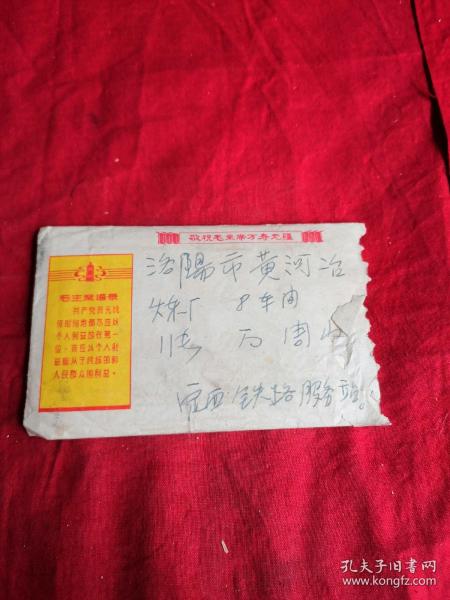 敬祝毛主席万寿无疆
洛陽市黄河冶
炼厂 8车间
张 万周
西铁路服务
毛主席语录
共产党员无论
何时何地都不应以
个人利益放在第一
位，而应以个人利
益服从于民族的和
人民群众的利益。
孔夫子旧书网
www.kongfz.com